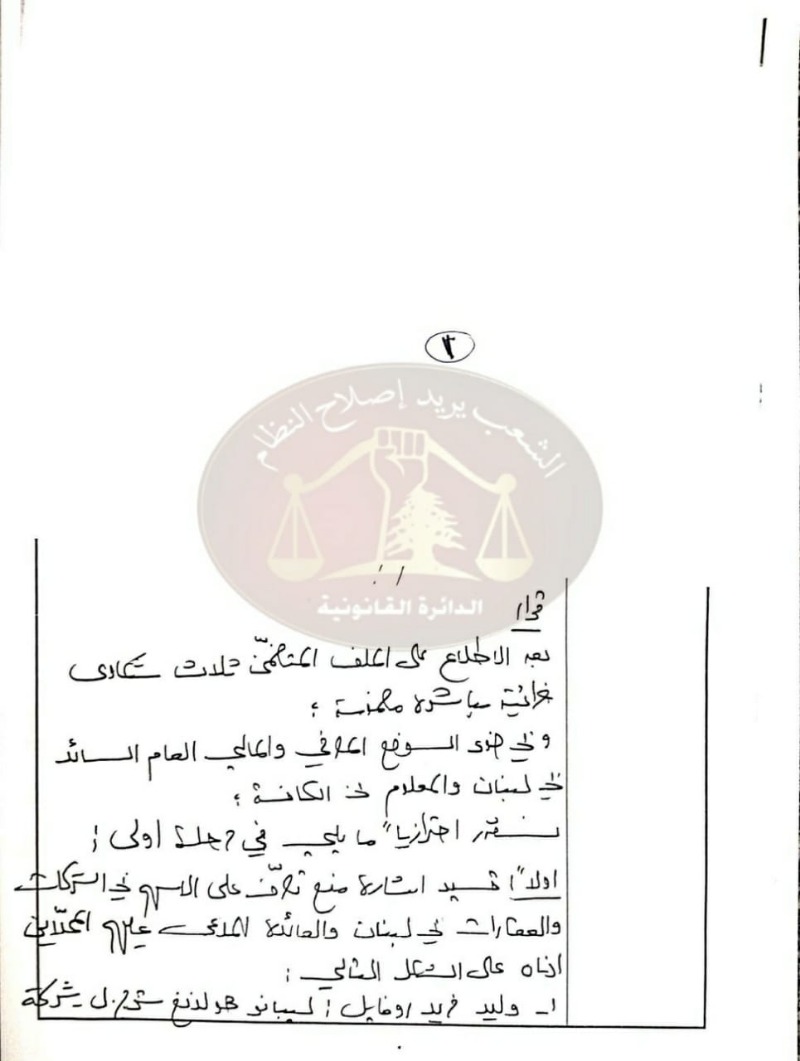 ٢
الشعب يريد إصلاح النظام
الدائرة القانونية
قرار
بعد الاطلاع على الملف المتضمّن ثلاث شكاوى
جزائية مباشرة مضمنة ؛
وفي ضوء الوضع المصرفي والمالي العام السائد
في لبنان والمعلوم لدى الكافة ؛
نقرر احترازياً ما يلي في مرحلة أولى :
اولاً : تسييد اشارة منع تصرّف على الاسهم في الشركات
والعقارات في لبنان والعائدة للمدعى عليهم المحلّلين
ادناه على الشكل التالي :
١- وليد فريد روفايل : ليبانو هولدنغ ش.م.ل شركة